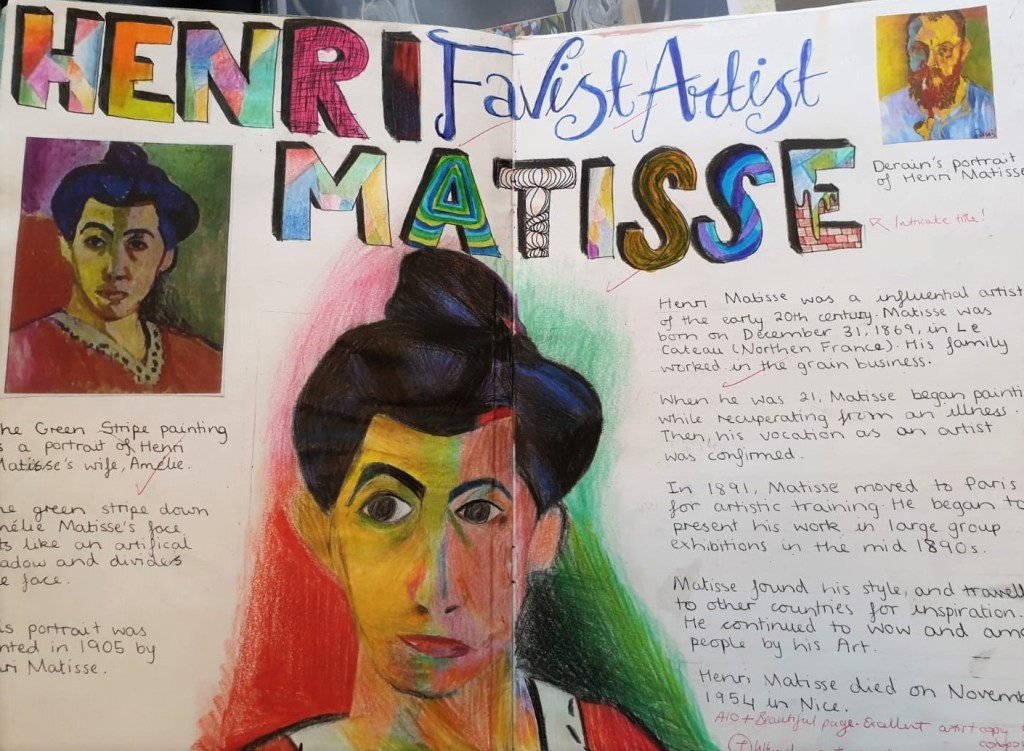 HENRI Favist Artist
MATISSE
Derain's portrait
of Henri Matisse
Intricate title!
he Green Stripe painting
s a portrait of Henri
Matisse's wife, Amélie.
he green stripe down
mélie Matisse's face
ts like an artifical
adow and divides
e face.
is portrait was
nted in 1905 by
ri Matisse.
Henri Matisse was a influential artist
of the early 20th century. Matisse was
born on December 31, 1869, in Le
Cateau (Northen France). His family
worked in the grain business.
When he was 21, Matisse began painti
while recuperating from an illness.
Then, his vocation as an artist
was confirmed.
In 1891, Matisse moved to Paris
for artistic training. He began to
present his work in large group
exhibitions in the mid 1890s.
Matisse found his style, and travell
to other countries for inspiration.
He continued to wow and ama
people by his Art.
Henri Matisse died on Novemb
1954 in Nice.
Beautiful page. Excellent artist copy